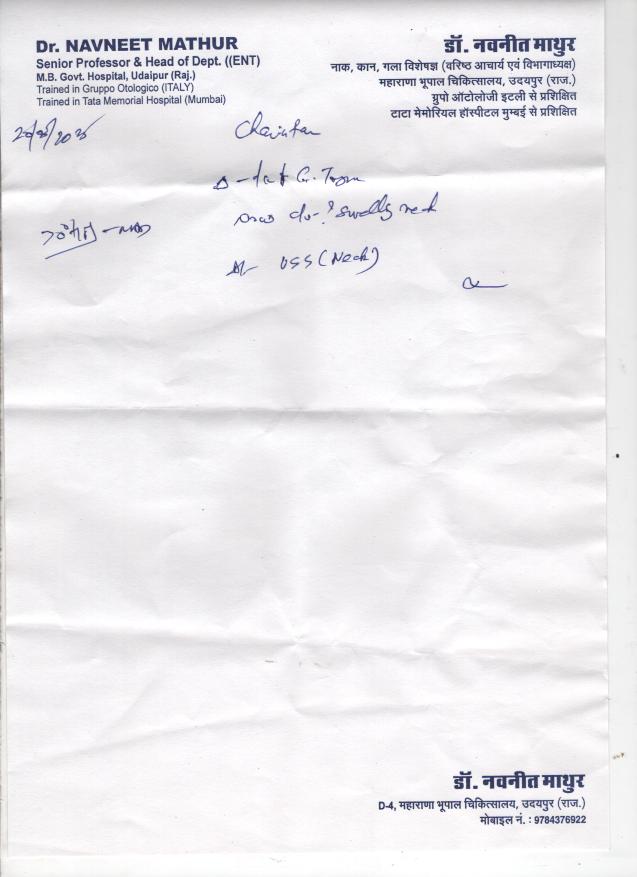 Dr. NAVNEET MATHUR
Senior Professor & Head of Dept. ((ENT)
M.B. Govt. Hospital, Udaipur (Raj.)
Trained in Gruppo Otologico (ITALY)
Trained in Tata Memorial Hospital (Mumbai)
डॉ. नवनीत माथुर
नाक, कान, गला विशेषज्ञ (वरिष्ठ आचार्य एवं विभागाध्यक्ष)
महाराणा भूपाल चिकित्सालय, उदयपुर (राज.)
ग्रुपो ऑटोलोजी इटली से प्रशिक्षित
टाटा मेमोरियल हॉस्पीटल मुम्बई से प्रशिक्षित
? swelling neck
USS (Neck)
डॉ. नवनीत माथुर
D-4, महाराणा भूपाल चिकित्सालय, उदयपुर (राज.)
मोबाइल नं. : 9784376922